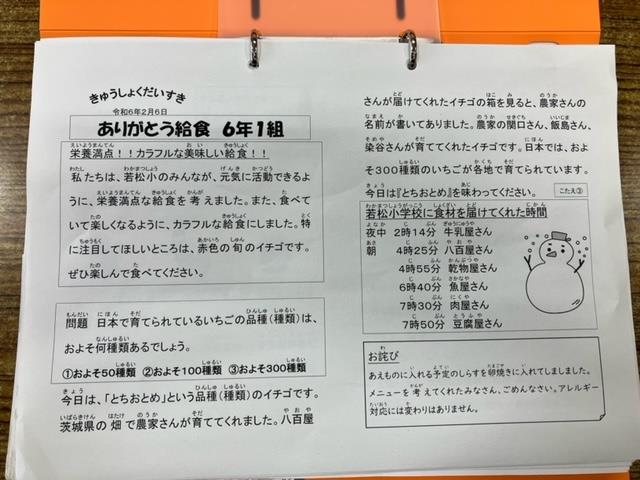 きゅうしょくだいすき
令和6年2月6日
ありがとう給食 6年1組
栄養満点!!カラフルな美味しい給食!!
私たちは、若松小のみんなが、元気に活動できるよ
うに、栄養満点な給食を考えました。また、食べて
いて楽しくなるように、カラフルな給食にしました。特
に注目してほしいところは、赤色の旬のイチゴです。
ぜひ楽しんで食べてください。
問題 日本で育てられているいちごの品種(種類)は、
およそ何種類あるでしょう。
①およそ50種類 ②およそ100種類 ③およそ300種類
今日は、「とちおとめ」という品種(種類)のイチゴです。
茨城県の畑で農家さんが育ててくれました。八百屋
さんが届けてくれたイチゴの箱を見ると、農家さんの
名前が書いてありました。農家の関口さん、飯島さん、
染谷さんが育ててくれたイチゴです。日本では、およ
そ300種類のいちごが各地で育てられています。
今日は『とちおとめ』を味わってください。 こたえ③
若松小学校に食材を届けてくれた時間
夜中 2時14分 牛乳屋さん
朝 4時25分 八百屋さん
4時55分 乾物屋さん
6時40分 魚屋さん
7時30分 肉屋さん
7時50分 豆腐屋さん
お詫び
あえものに入れる予定のしらすを卵焼きに入れてしましました。
メニューを考えてくれたみなさん、ごめんなさい。アレルギー
対応には変わりはありません。